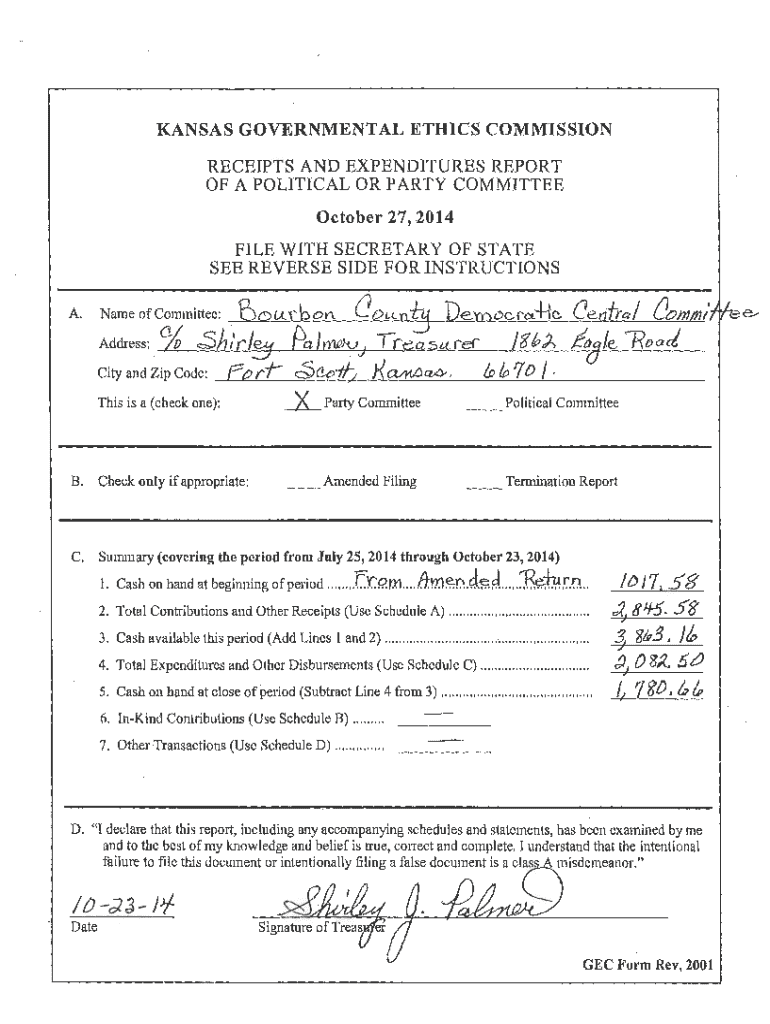 KANSAS GOVERNMENTAL ETHICS COMMISSION
RECEIPTS AND EXPENDITURES REPORT
OF A POLITICAL OR PARTY COMMITTEE
October 27, 2014
FILE WITH SECRETARY OF STATE
SEE REVERSE SIDE FOR INSTRUCTIONS
A. Name of Committee: Bourbon County Democratic Central Committee
Address: c/o Shirley Palmer, Treasurer 1862 Eagle Road
City and Zip Code: Fort Scott, Kansas. 66701.
This is a (check one): X Party Committee ____ Political Committee
B. Check only if appropriate: ____ Amended Filing ____ Termination Report
C. Summary (covering the period from July 25, 2014 through October 23, 2014)
1. Cash on hand at beginning of period ....... From Amended Return 1017.58
2. Total Contributions and Other Receipts (Use Schedule A) ....... 2,845.58
3. Cash available this period (Add Lines 1 and 2) ....... 3,863.16
4. Total Expenditures and Other Disbursements (Use Schedule C) ....... 2,082.50
5. Cash on hand at close of period (Subtract Line 4 from 3) ....... 1,780.66
6. In-Kind Contributions (Use Schedule B) ......... —
7. Other Transactions (Use Schedule D) ............. —
D. "I declare that this report, including any accompanying schedules and statements, has been examined by me
and to the best of my knowledge and belief is true, correct and complete. I understand that the intentional
failure to file this document or intentionally filing a false document is a class A misdemeanor."
10-23-14 Shirley J. Palmer
Date Signature of Treasurer
GEC Form Rev, 2001